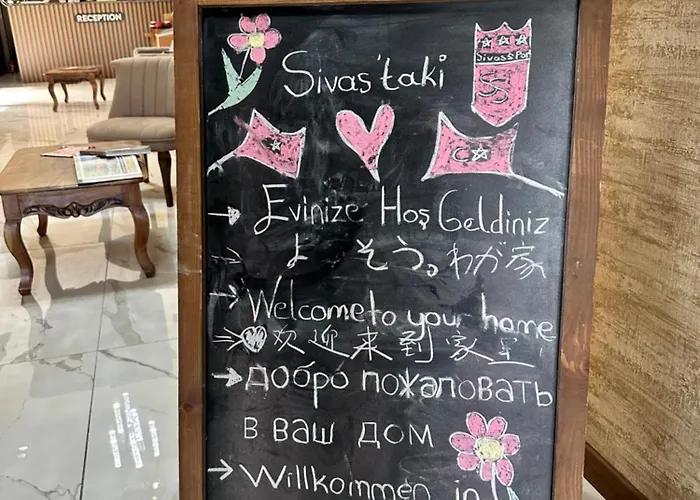 RECEPTION
Sivas'taki
SivassPor
S
S
→ Evinize Hoş Geldiniz
→ よ そう。わが家
→ Welcome to your home
⇒ ♥ 欢迎来到家里
→ добро пожаловать
в ваш дом
→ Willkommen in